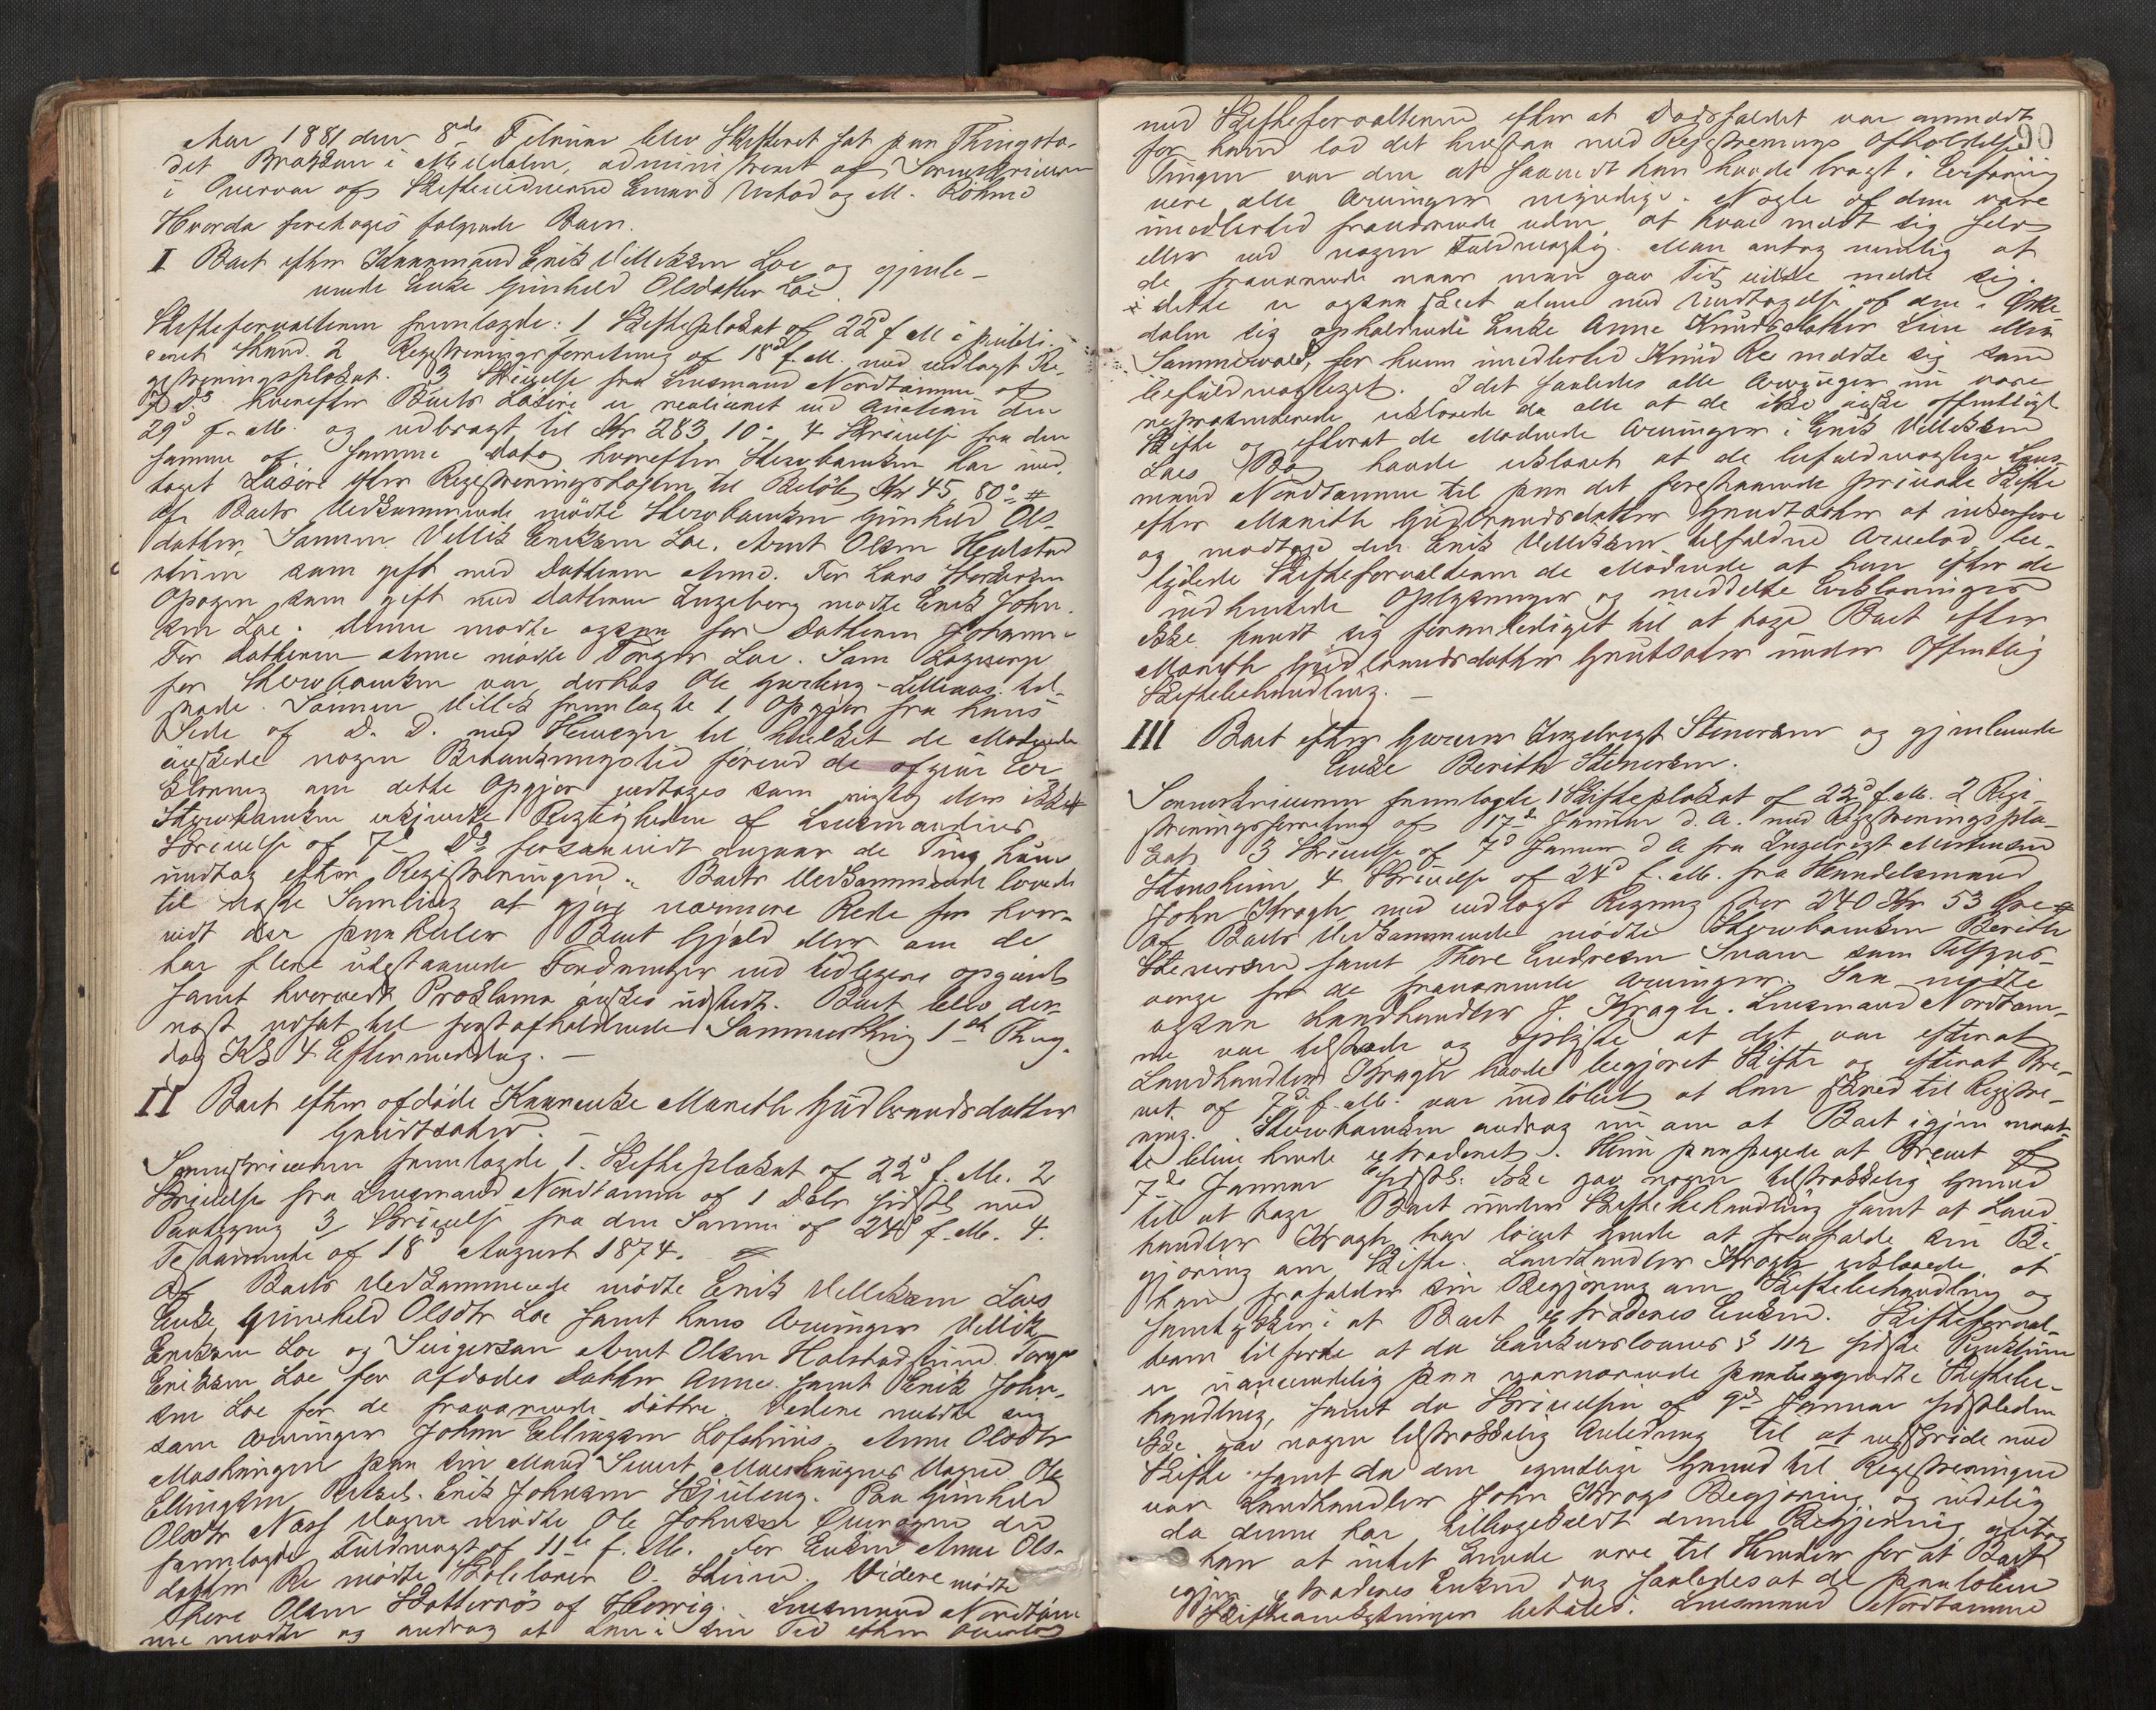 Aar 1881 den 8de Februar blev Skifteret sat paa Thingste-
det Brattan i Meldalen, administreret af Sorenskriveren
i Overvær af Skiftevidnerne Einar Urhod og M. Röhme
Hvorda foretoges følgende Boer.
I Boet efter Kaarmand Erik Villiksen Loe og gjenle-
vende Enke Gunhild Olsdatter Loe.
Skifteforvalteren fremlagde: 1 Skifteplakat af 22d f M i publi-
ceret Stand. 2 Registreringsforretning af 18d f. M. med vedlagt Re-
gistreringsplakat. 3 Skrivelse fra Lensmand Nordtømme af
7d Ds hvorefter Boets Løsøre er realiseret ved Auction den
29d f. M. og udbragt til Kr 283, 10. 4 Skrivelse fra den
samme af samme Dato hvorefter Stervboenken har ud-
taget Løsøre efter Registreringstaxten til Beløb Kr 45, 80 #
Af Boets Vedkommende mødte Stervboenken Gunhild Ols-
datter, Sønnen Villik Eriksen Loe, Arnt Olsen Halstad-
stuen som gift med Datteren Anne. For Lars Størkersen
Opøien som gift med Datteren Ingeborg mødte Erik John-
sen Loe. Denne mødte ogsaa for Datteren Johanne
For Datteren Anne mødte Torger Loe. Som Laugværge
for Stervboenken var derhos Ole Lillevas til-
stede. Sønnen Villik fremlagde 1 Opgjør fra hans
Side af D. D. med Hensyn til hvilket de Mødende
ønskede nogen Betænkningstid førend de afgiver Er-
klæring om dette Opgjør vedtages som rigtig eller ikke #
Stervboenken erkjendte Rigtigheden af Lensmandens
Skrivelse af 7de Ds forsaavidt angaar de Ting hun
udtog efter Registreringen. Boets Vedkommende lovede
til næste Samling at gjøre nærmere Rede for hvor-
vidt der paahviler Boet Gjæld eller om de
har flere udestaaende Fordringer ved tidligere opgivet
samt hvorvidt Proklama ønskes udstedt. Boet blev der-
næst udsat til førstafholdende Sommerthing 1ste Thing-
dag Kl 4 Eftermiddag. —
II Boet efter afdøde Kaarenke Marith Gudbrandsdatter
Grudtsæter. —
Sorenskriveren fremlagde 1. Skifteplakat af 22d f. M. 2
Skrivelse fra Lensmand Nordtømme af 1 Decbr sidstl. med
Paategning 3 Skrivelse fra den Samme af 24d f. M. 4.
Testamente af 18d August 1874. #
Af Boets Vedkommende mødte Erik Villiksen Loes
Enke, Gunhild Olsdtr Loe samt hans Arvinger Villik
Eriksen Loe og Svigersøn Arnt Olsen Halstadstuen. Torger
Eriksen Loe for afdødes Datter Anne. samt Erik John-
sen Loe for de fraværende Døttre. Videre meldte sig
som Arvinger John Ellingsen Lofshuus. Anne Olsdtr
Moshaugen paa sin Mand Sivert Moeshaugens Vegne Ole
Ellingsen Erik Johnsen Skjuleng. Paa Gunhild
Olsdtr Næss Vegne mødte Ole Johnsen der
fremlagde Fuldmagt af 11te f. M. For Enken Anne Ols-
datter Re mødte Skolelærer O. Skime. Videre mødte
Thore Olsen Skotterøs af Hevrig. Lensmand Nordtøm-
me mødte og androg at han i sin Tid efter
med Skifteforvalteren efter at Dødsfaldet var anmeldt
for ham lod det bestaa med Registrerings Afholdelse 90
Tingen var den at saavidt han havde bragt i Erfaring
vare alle Arvinger myndige. Nogle af dem vare
imidlertid fraværende uden at have meldt sig selv
eller ved nogen Fuldmægtig. Man antog nemlig at
de fraværende naar man gav Tid vilde melde sig.
i dette er ogsaa skeet alene med Undtagelse af den i Orke-
dalen sig opholdende Enke Anne Knudsdatter Lien eller
Sommervold, for hvem imidlertid Knud Re mødte sig som
befuldmægtiget. Idet saaledes alle Arvinger nu vare
repræsenterede erklærede de alle at de ikke ønske offentligt
Skifte og efterat de Mødende Arvinger i Erik Villiksen
Loes Bo havde erklæret at de befuldmægtige Lens-
mand Nordtømme til paa det forestaaende private Skifte
efter Marith Gudbrandsdatter Grudtsæter at inkassere
og modtage den Erik Villiksen tilfaldne Arvelod be-
tydede Skifteforvalteren de Mødende at han efter de
indhentede Oplysninger og meddelte Erklæringer
ikke fandt sig foranlediget til at tage Boet efter
Marith Gudbrandsdatter Grudtsæter under Offentlig
Skiftebehandling. —
III Boet efter Gaardm Ingebrigt Stenersen og gjenlevende
Enke Berith Stenersen.
Sorenskriveren fremlagde 1 Skifteplakat af 22d f. M. 2 Regi-
streringsforretning af 17de Januar d. A. med Registreringspla-
kat. 3 Skrivelse af 7d Januar d A fra Ingebrigt Mortensen
Stensheim 4 Skrivelse af 24d f. M. fra Handelsmand
John Kragh med vedlagt Regning stor 240 Kr 53 Øre #
Af Boets Vedkommende mødte Stervboenken Berith
Stenersen samt Thore Endresen Snoen som Tilsyns-
værge for de fraværende Arvinger. Saa mødte
ogsaa Landhandler J. Kragh. Lensmand Nordtøm-
me var tilstede og oplyste at det var efterat
Landhandler Kragh havde begjæret Skifte og efterat Bre-
vet af 7d f. M. var indløbet at han skred til Registre-
ring. Stervboenken androg nu om at Boet igjen maat-
te blive hende extraderet. Hun paapegede at Brevet af
7de Januar sidstl. ikke gav nogen tilstrækkelig Grund
til at tage Boet under Skiftebehandling samt at Land-
handler Kragh har lovet hende at frafalde sin Be-
gjæring om Skifte. Landhandler Kragh erklærede at
han frafalder sin Begjæring om Skiftebehandling og
samtykker i at Boet extraderes Enken. Skifteforval-
teren tilførte at da Concurslovens § 112 sidste Punktum
er uanvendelig paa nærværende paabegyndte Skiftebe-
handling, samt da Skrivelsen af 9de Januar sidstleden
ikke gav nogen tilstrækkelig Anledning til at udskride med
Skifte samt da den egentlige Grund til Registreringen
var Landhandler John Krags Begjæring og endelig
da denne har tilbagekaldt denne Begjæring, antog
han at intet kunde være til Hinder for at Boet
igjen extraderes Enken dog saaledes at de paaløbne
Skifteomkostninger betales. Lensmand Nordtømme